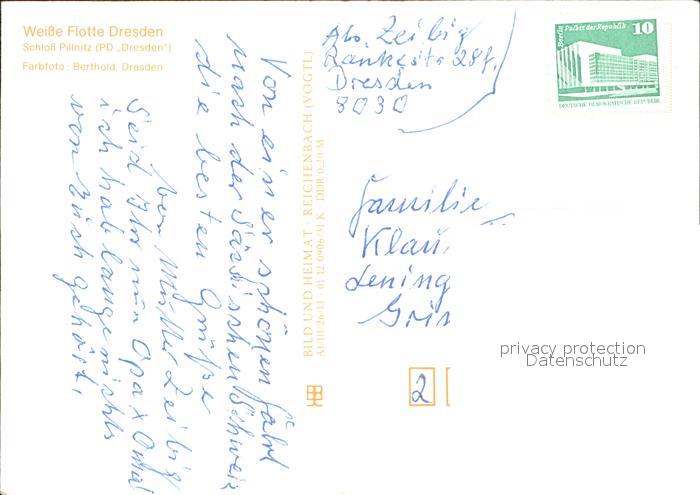 Weiße Flotte Dresden
Schloß Pillnitz (PD „Dresden")
Farbfoto: Berthold, Dresden
Von einer schönen Fahrt
nach der Sächsischen Schweiz
die besten Grüße
von Mutter Zeibig
Seid Ihr nun Opa & Oma
ich hab lange nichts
von Euch gehört.
BILD UND HEIMAT · REICHENBACH (VOGTL)
A1/III/26/13 01 12 0906/31 K DDR 0,20 M
Abs. Zeibig
Rankestr. 28f.
Dresden
8030
Berlin Palast der Republik
10
DEUTSCHE DEMOKRATISCHE REPUBLIK
Familie
Klau
Gris
privacy protection
Datenschutz
2